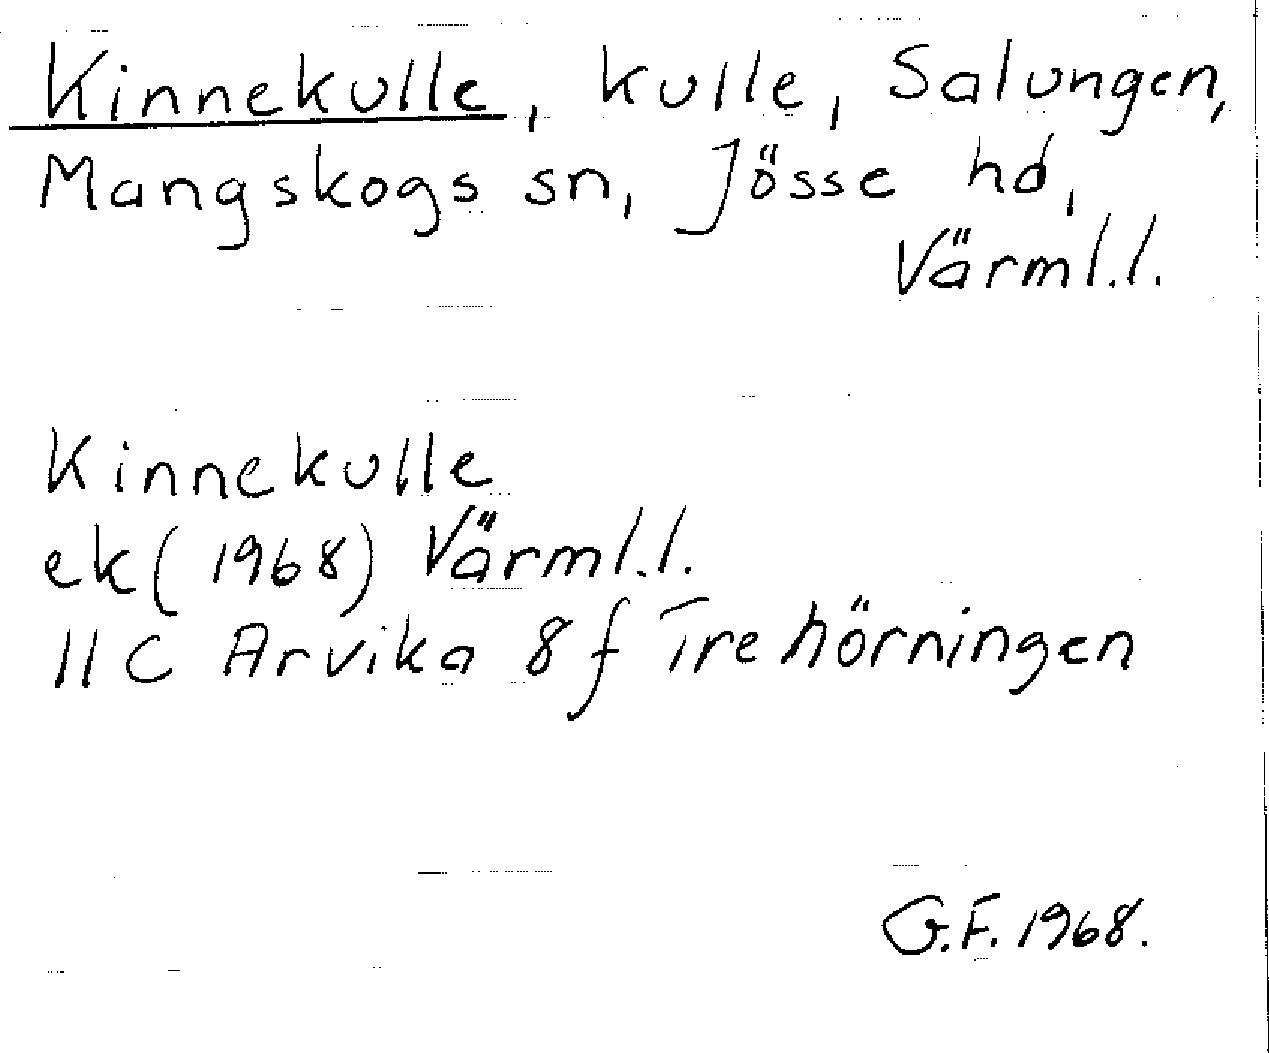 Kinnekulle, kulle, Salungen,
Mangskogs sn, Jösse hd,
Värml.l.
Kinnekulle
ek(1968) Värml.l.
11C Arvika 8f Trehörningen
G.F. 1968.